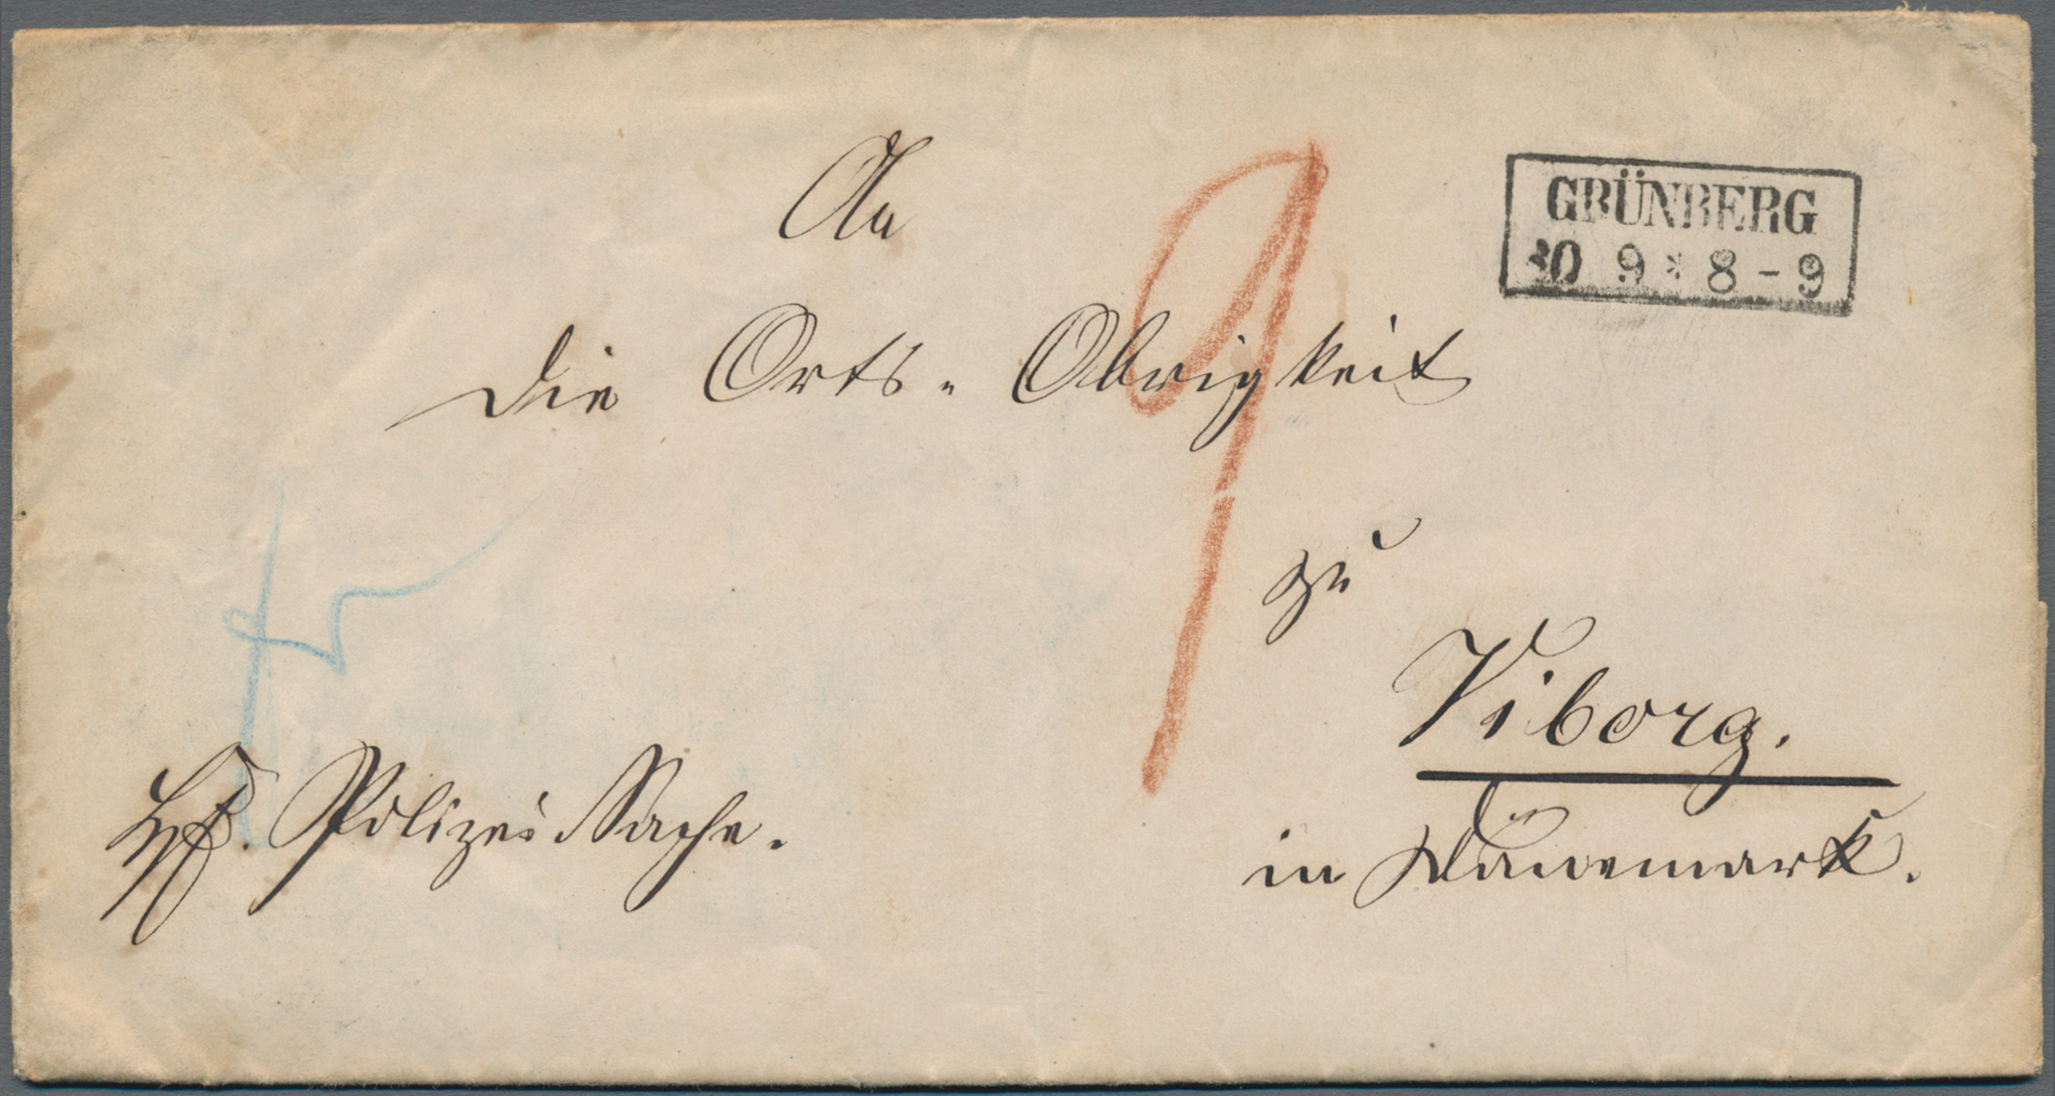 An
die Orts-Obrigkeit
zu
Viborg.
in Dänemark.
Polizei Sache.
GRÜNBERG
30 9 * 8 - 9
9